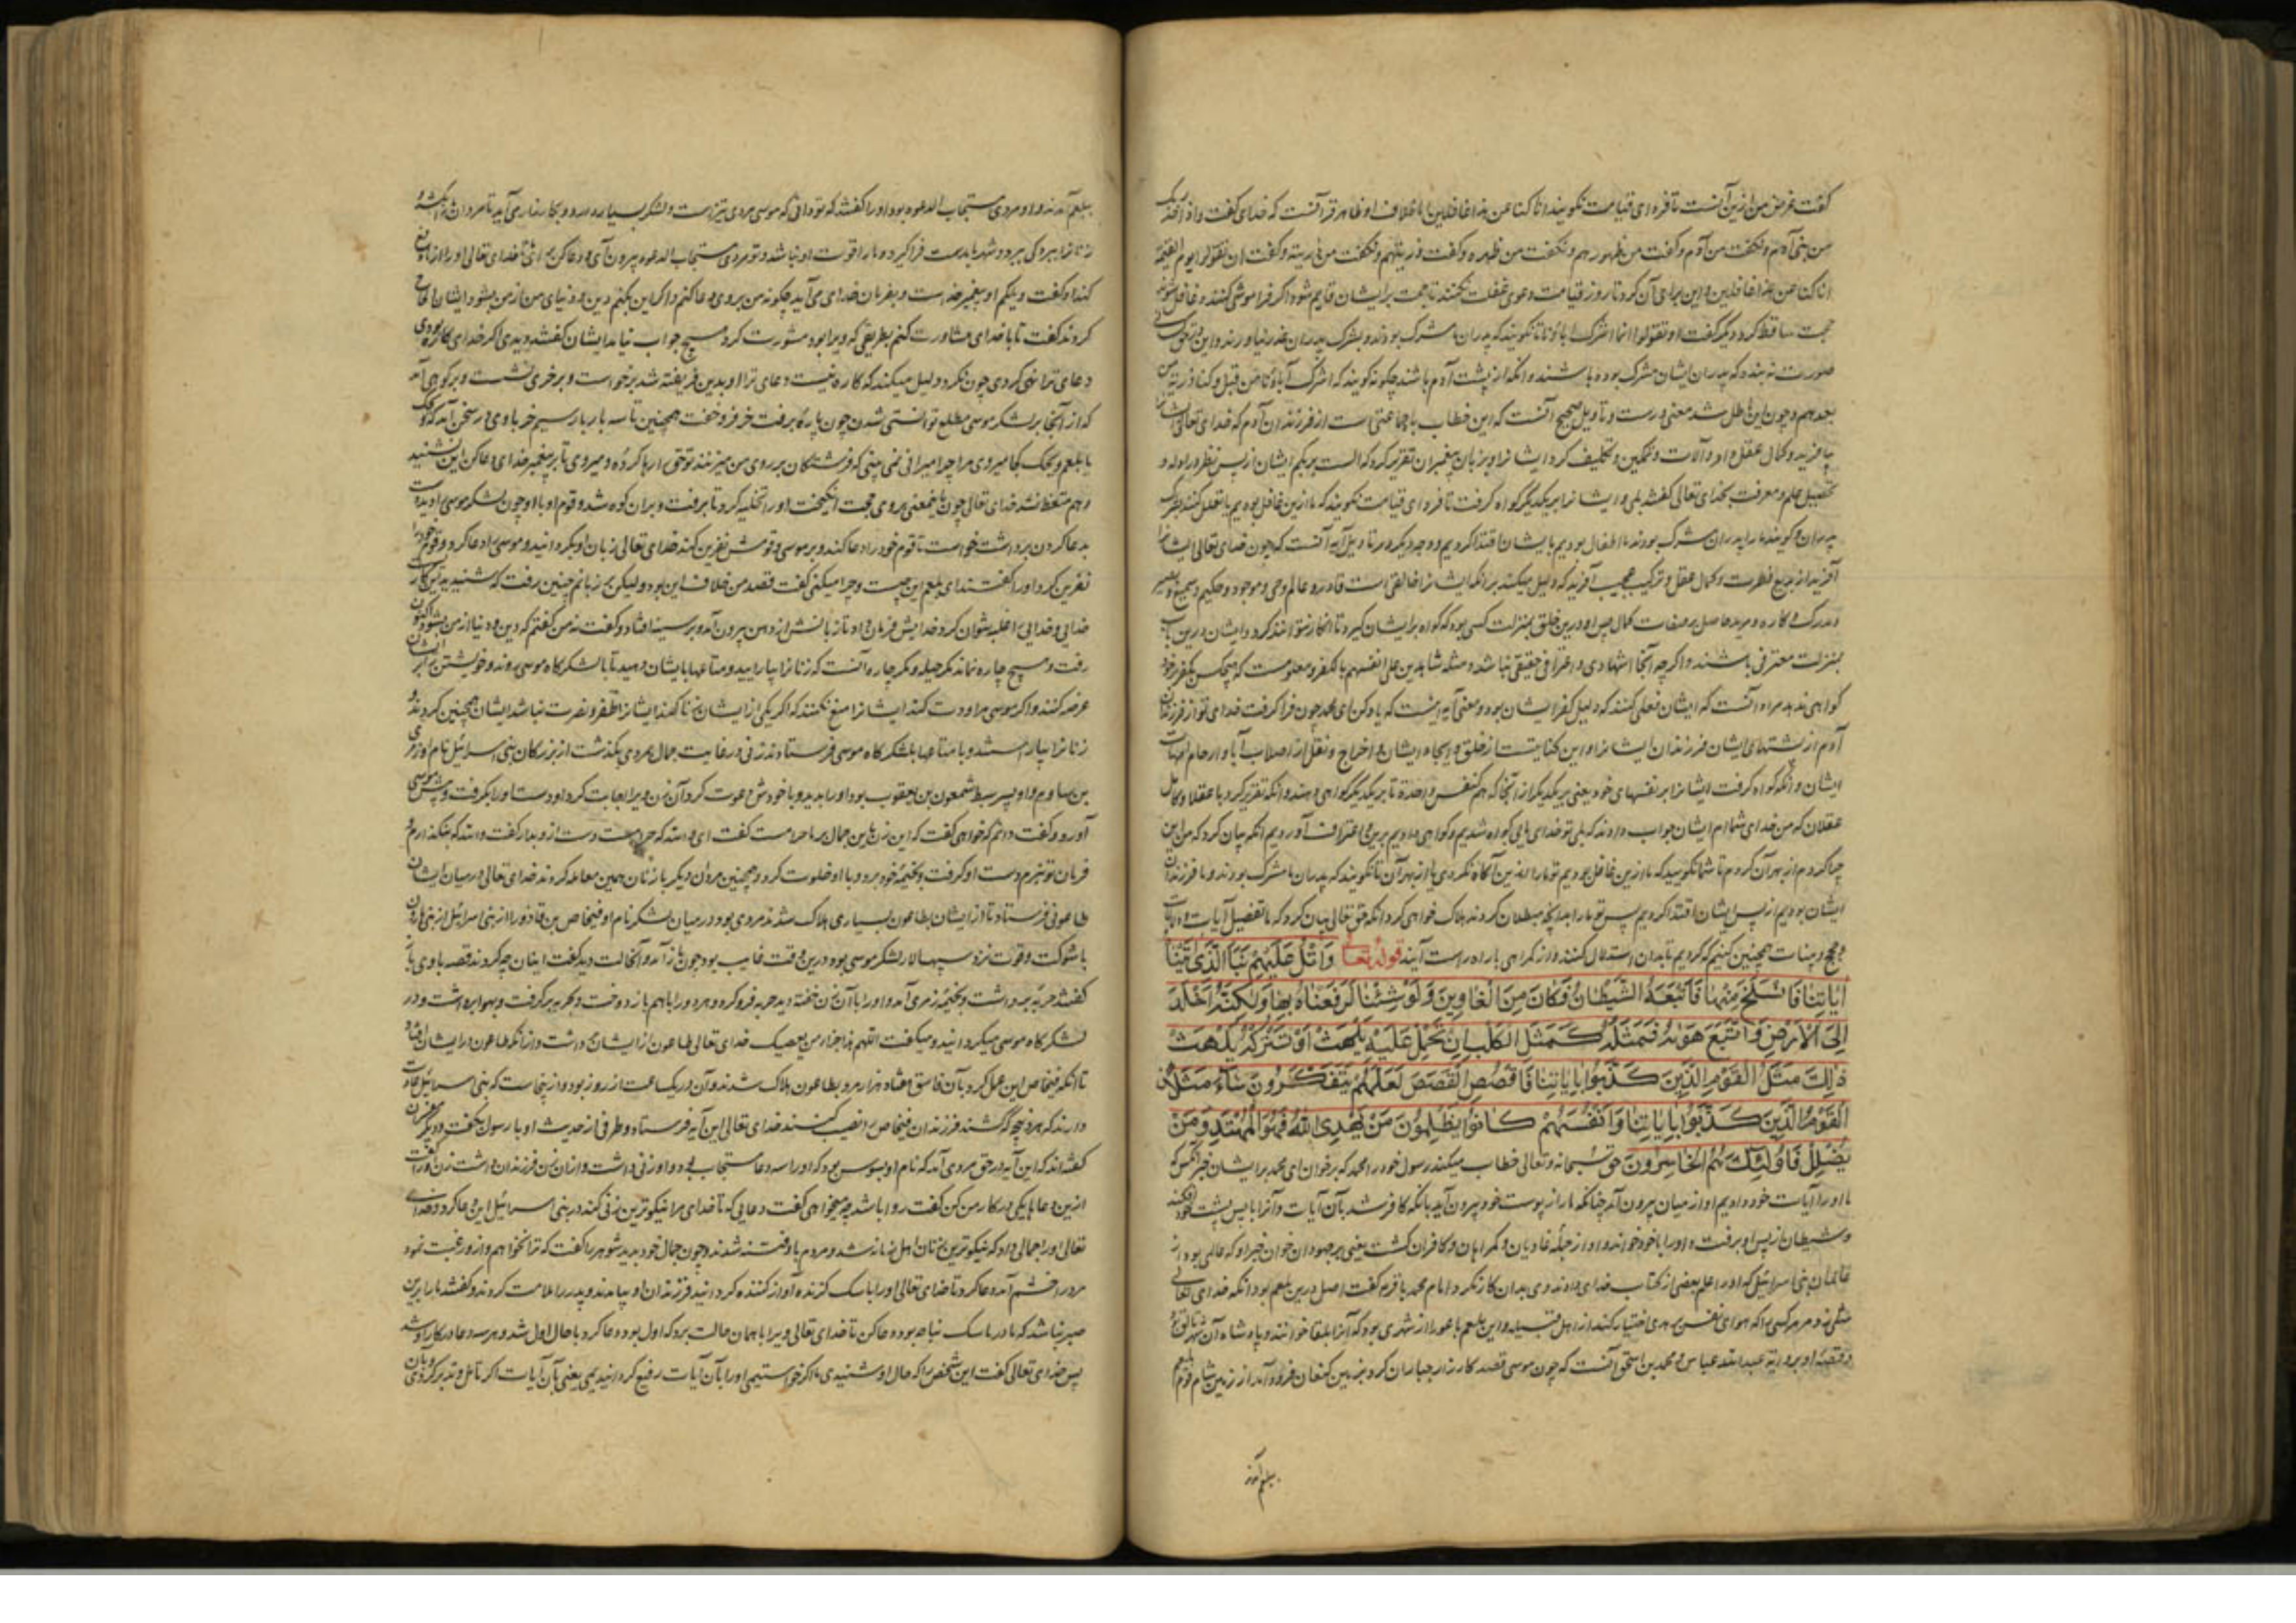 کفت غرض من ازین آنست تا فردای قیامت نکویند انا کنا عن هذا غافلین این خلاف او ظاهر قرآنست که خدای کفت واذ اخذ ربک
من بنی آدم و نکفت من آدم و کفت من ظهورهم و نکفت من ظهره و کفت ذریتهم و نکفت من ذریته و کفت ان تقولوا یوم القیمة
انا کنا عن هذا غافلین و این برای آن کرد تا روز قیامت دعوی غفلت نکنند تا حجت برایشان قایم شود اکر فراموش کنند و غافل شوند
حجت ساقط کردد دیکر کفت او تقولوا انما اشرک اباؤنا تا نکویند که پدران ما مشرک بودند و بشرک پدران عذر نیاورند و این
صورت نه بندد که پدران ایشان مشرک بوده باشند و انکه از پشت آدم باشند چکونه کویند که اشرک آباؤنا من قبل و کنا ذریة من
بعدهم و چون این باطل شد معنی درست و تاویل صحیح آنست که این خطاب با جماعتی است از فرزندان آدم که خدای تعالی ایشانرا
بیافرید و کمال عقل داد و آلات و تمکین و تکلیف کرد ایشانرا و بر زبان پیغمبران تقریر کرد که الست بربکم ایشان از پس نظر در ادله و
تحصیل علم و معرفت بخدای تعالی کفتند بلی و ایشانرا بر یکدیکر کواه کرفت تا فردای قیامت نکویند که ما ازین غافل بودیم یا تعلل کنند بشرک
پدران و کویند ما را پدران مشرک بودند ما اطفال بودیم با ایشان اقتدا کردیم و وجه دیکر در تاویل آیه آنست که چون خدای تعالی ایشانرا
آفرید از بدیع فطرت و کمال عقل و ترکیب عجیب آفرید که دلیل میکند بر انکه ایشانرا خالقی است قادر و عالم و حی و موجود و حکیم و سمیع و بصیر
و مدرک و کاره و مرید حاصل بر صفات کمال پس او درین خلق بمنزلت کسی بود که کواه برایشان کیرد تا انکار نتوانند کرد و ایشان درین باب
بمنزلت معترفی باشند و اکر چه آنجا اشهادی و اعترافی حقیقی نباشد و مثله شاهدین علی انفسهم بالکفر و معلومست که هیچکس بکفر خود
کواهی ندهد مراد آنست که ایشان فعلی کنند که دلیل کفر ایشان بود و معنی آیه اینست که یاد کن ای محمد چون فرا کرفت خدای تو از فرزندان
آدم از پشتهای ایشان فرزندان ایشانرا و این کنایتست از خلق و ایجاد ایشان و اخراج و نقل از اصلاب آبا و ارحام امهات
ایشان و انکه کواه کرفت ایشانرا بر نفسهای خود یعنی بر یکدیکر از آنجا که هم کنفس واحدة تا بر یکدیکر کواهی دهند و انکه تقریر کرد با عقلا و کامل
عقلان که من خدای شما ام ایشان جواب دادند که بلی تو خدای مایی کواه شدیم و کواهی دادیم برین و اعتراف آوردیم انکه بیان کرد که من این
چرا کردم از بهر آن کردم تا شما نکویید که ما ازین غافل بودیم تو ما را ازین آکاه نکردی یا از بهر آن تا نکویند که پدران ما مشرک بودند و ما فرزندان
ایشان بودیم از پس ایشان اقتدا کردیم پس تو ما را بدانچه مبطلان کردند هلاک خواهی کرد انکه حق تعالی بیان کرد که ما تفصیل آیات و
و حجج و بینات همچنین کنیم که کردیم تا بدان استدلال کنند و از کمراهی با راه راست آیند قوله تعالی وَاتْلُ عَلَیْهِمْ نَبَأَ الَّذِی اٰتَیْنَاهُ
اٰیَاتِنَا فَانْسَلَخَ مِنْهَا فَاَتْبَعَهُ الشَّیْطَانُ فَکَانَ مِنَ الْغَاوِینَ وَلَوْ شِئْنَا لَرَفَعْنَاهُ بِهَا وَلٰکِنَّهُ اَخْلَدَ
اِلَی الْاَرْضِ وَاتَّبَعَ هَوٰیهُ فَمَثَلُهُ کَمَثَلِ الْکَلْبِ اِنْ تَحْمِلْ عَلَیْهِ یَلْهَثْ اَوْ تَتْرُکْهُ یَلْهَثْ
ذٰلِکَ مَثَلُ الْقَوْمِ الَّذِینَ کَذَّبُوا بِاٰیَاتِنَا فَاقْصُصِ الْقَصَصَ لَعَلَّهُمْ یَتَفَکَّرُونَ سَاءَ مَثَلًا
الْقَوْمُ الَّذِینَ کَذَّبُوا بِاٰیَاتِنَا وَاَنْفُسَهُمْ کَانُوا یَظْلِمُونَ مَنْ یَهْدِی اللهُ فَهُوَ الْمُهْتَدِی وَمَنْ
یُضْلِلْ فَاُولٰئِکَ هُمُ الْخَاسِرُونَ حق سبحانه و تعالی خطاب میکند رسول خود را محمد که برخوان ای محمد برایشان خبر آنکس که
ما او را آیات خود دادیم او از میان بیرون آمد چنانکه مار از پوست خود بیرون آید بانکه کافر شد بآن آیات و آنرا با پس پشت خود افکند
و شیطان از پس او برفت و او را با خود خواند و او از جمله غاویان و کمراهان و کافران کشت یعنی بر جهودان خوان خبر او که عالمی بود از
عالمان بنی اسرائیل که او را علم بعضی از کتاب خدای دادند وی بدان کار نکرد و امام محمد باقر کفت اصل درین بلعم بود انکه خدای تعالی
مثلی زد مر هر کسی را که هوای نفس بر هدی اختیار کند از اهل قبیله و این بلعم باعورا از شهری بود که آنرا بلقا خوانند و پادشاه آن شهر
و قصه او بروایة عبدالله عباس و محمد بن اسحق آنست که چون موسی قصد کارزار جباران کرد بزمین کنعان فرود آمد از زمین شام قوم
بلعم آمدند
بلعم آمدند و او مردی مستجاب الدعوه بود او را کفتند که تو دانی که موسی مردی تیز است و لشکر بسیار دارد و بکارزار ما می آید تا مردان ما را بکشد و
زنانرا ببردکی ببرد و شهر ما بدست فرا کیرد و ما را قوت او نباشد و تو مردی مستجاب الدعوه بیرون آی و دعا کن برای ما تا خدای تعالی او را از ما دفع
کند او کفت ویلکم او پیغمبر خداست و بفرمان خدای می آید چکونه من بروی دعا کنم و اکر این بکنم دین و دنیای من از من بشود ایشان الحاح
کردند کفت تا با خدای مشاورت کنم بطریقی که ویرا بود مشورت کرد هیچ جواب نیامد ایشان کفتند دیدی اکر خدای کاره بودی
دعای ترا نهی کردی چون نکرد دلیل میکند که کاره نیست دعای ترا او بدین فریفته شد برخواست و بر خری نشست و بر کوهی آمد
که از آنجا بر لشکر موسی مطلع توانستی شدن چون پاره برفت خر فرو خفت همچنین تا سه بار بار سیم خر با وی در سخن آمد که
یا بلعم ویحک کجا میروی مرا چرا میرانی نمی بینی که فرشتکان بر روی من میزنند تو حق رها کرده و میروی تا بر پیغمبر خدای دعا کن این نشنید
و هم متعظ نشد خدای تعالی چون باینمعنی بروی حجت انکیخت او را تخلیه کرد تا برفت و بران کوه شد و قوم او با او چون لشکر موسی را بدید
بدعا کردن برداشت خواست تا قوم خود را دعا کند و بر موسی و قومش نفرین کند خدای تعالی زبان او بکردانید و موسی را دعا کرد و قوم خود را
نفرین کرد او را کفتند ای بلعم این چیست و چرا میکنی کفت قصد من خلاف این بود ولیکن بر زبانم چنین رفت که شنیدید این کار
خدایی و خدای را غلبه نتوان کرد خدایش فرمان داد تا زبانش از دهن بیرون آمد و بر سینه افتاد و کفت نه من کفتم که دین و دنیا از من بشود اکنون
رفت و هیچ چاره نماند مکر حیله و مکر چاره آنست که زنانرا بیارایید و متاعها بایشان دهید تا با لشکرکاه موسی روند و خویشتن بر ایشان
عرضه کنند و اکر کسی مراودت کند ایشانرا منع نکنند که اکر یکی از ایشان زنا کند ایشانرا ظفر و نصرت نباشد ایشان همچنین کردند و
زنانرا بیاراستند و با متاعها بلشکرکاه موسی فرستادند زنی در غایت جمال بمردی بکذشت از بزرکان بنی اسرائیل نام او زمری
بن ساوم و او پسر سبط شمعون بن یعقوب بود او را بدید و با خودش دعوت کرد آن زن ویرا اجابت کرد او دست او را بکرفت و پیش موسی
آورد و کفت دانم که خواهی کفت که این زن باین جمال بر ما حرامست کفت ای والله که حرامست دست ازو بدار کفت والله که بنکذارم و
فرمان تو نبرم دست او کرفت و بخیمه خود برد و با او خلوت کرد و همچنین مردان دیکر با زنان همین معامله کردند خدای تعالی در میان ایشان
طاعونی فرستاد تا از ایشان بطاعون بسیاری هلاک شدند مردی بود در میان لشکر نام او فنحاص بن قاذورا از بنی اسرائیل از بنی هارون
با شوکت و قوت نزد سپهسالار لشکر موسی بود درین وقت غایب بود چون باز آمد و آنحالت دید کفت اینان چه کردند قصه با وی باز
کفتند حربه برداشت و بخیمه زمری آمد و او را با آن زن خفته دید حربه فرو کرد و هر دو را باهم باز دوخت و بحربه برکرفت و بهوا برداشت و در
لشکرکاه موسی میکردانید و میکفت اللهم هذا جزاء من یعصیک خدای تعالی طاعون از ایشان برداشت و از انکه طاعون در ایشان افتاد
تا انکه فنحاص این عمل کرد بآن فاسق هفتاد هزار مرد بطاعون هلاک شدند و آن در یکساعت از روز بود و از ینجاست که بنی اسرائیل عادت
دارند که هر ذبیحه که کشند فرزندان فنحاص را نصیب کنند خدای تعالی این آیه فرستاد و طرفی از حدیث او با رسول بکفت و دیکر مفسران
کفته اند که این آیه در حق مردی آمد که نام او بسوس بود که او را سه دعا مستجاب بود و او زنی داشت و از ان زن فرزندان داشت زن او را کفت
ازین دعاها یکی در کار من کن کفت روا باشد چه میخواهی کفت دعایی که تا خدای مرا نیکوترین زنی کند در بنی اسرائیل این دعا کرد و خدای
تعالی او را جمالی داد که نیکوترین زنان اهل زمانه شد و مردم باو فتنه شدند و چون جمال خود بدید شوهر را کفت که ترا نخواهم و از و رغبت نمود
مرد را خشم آمد و دعا کرد تا خدای تعالی او را با سک کزنده آواز کننده کردانید فرزندان او بیامدند و پدر را ملامت کردند و کفتند ما را برین
صبر نباشد که مادر ما سک نباحه بود دعا کن تا خدای تعالی ویرا با همان حالت برد که اول بود دعا کرد با حال اول شد و هر سه دعا در کار او شد
پس خدای تعالی کفت این شخص را که حال او شنیدی ما اکر خواستیمی او را بآن آیات رفیع کردانیدیمی یعنی بآن آیات اکر تامل و تدبر کردی